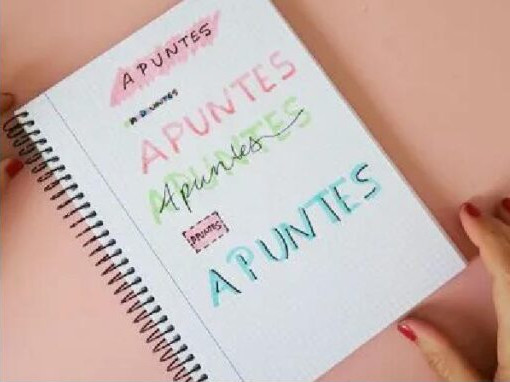 APUNTES
APUNTES
APUNTES
APUNTES
Apuntes
APUNTES
APUNTES